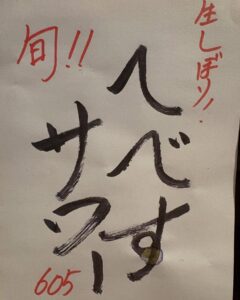 生しぼり！
旬!!
へべす
サワー
605